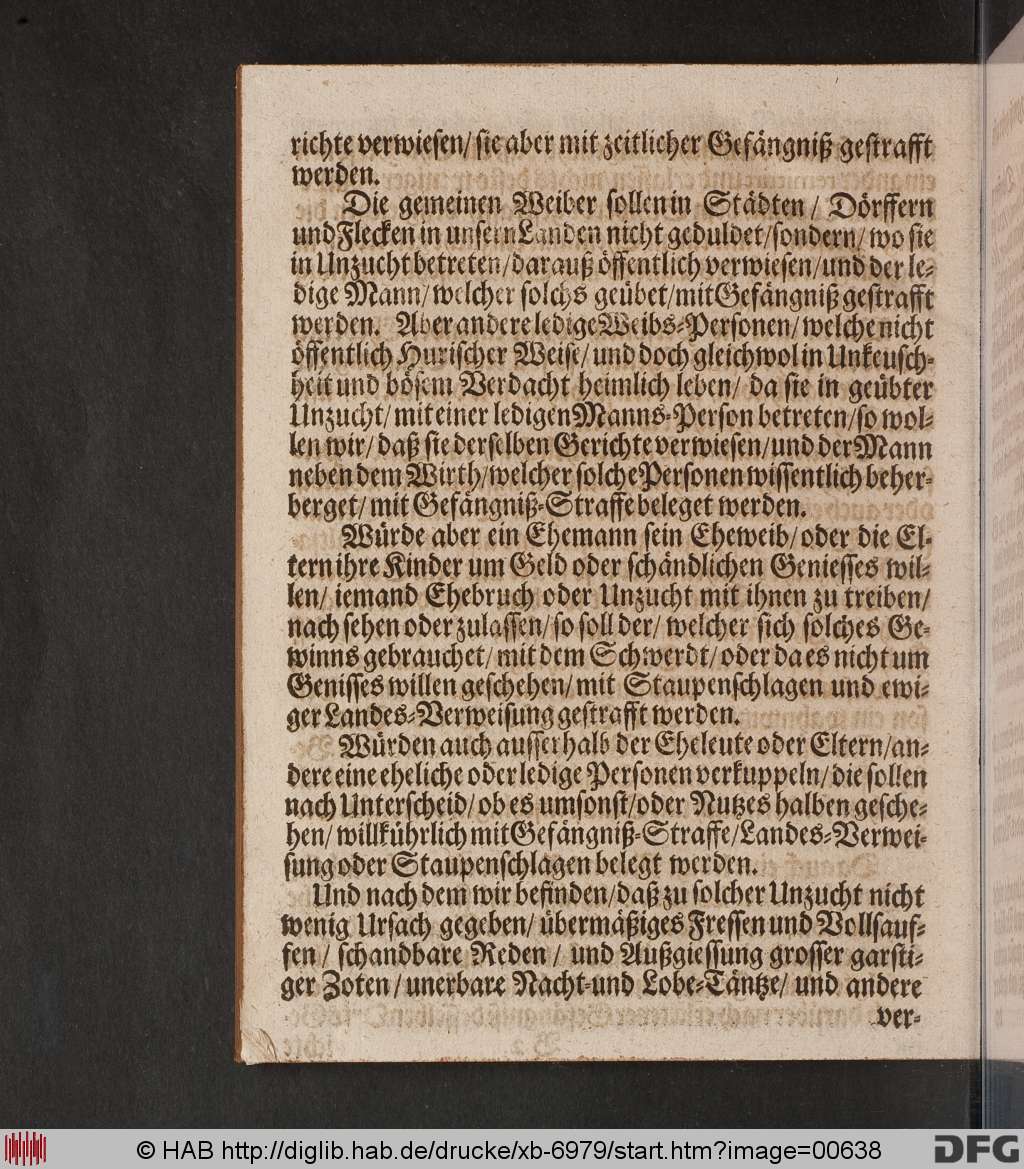 richte verwiesen/ sie aber mit zeitlicher Gefängniß gestrafft
werden.
Die gemeinen Weiber sollen in Städten / Dörffern
und Flecken in unsern Landen nicht geduldet/sondern/ wo sie
in Unzucht betreten/darauß öffentlich verwiesen/und der le-
dige Mann/ welcher solchs geübet/mit Gefängniß gestrafft
werden. Aber andere ledige Weibs-Personen/ welche nicht
öffentlich Hurischer Weise/ und doch gleichwol in Unkeusch-
heit und bösem Verdacht heimlich leben/ da sie in geübter
Unzucht/ mit einer ledigen Manns-Person betreten/so wol-
len wir/ daß sie derselben Gerichte verwiesen/und der Mann
neben dem Wirth/welcher solche Personen wissentlich beher-
berget/ mit Gefängniß-Straffe beleget werden.
Würde aber ein Ehemann sein Eheweib/ oder die El-
tern ihre Kinder um Geld oder schändlichen Geniesses wil-
len/ iemand Ehebruch oder Unzucht mit ihnen zu treiben/
nach sehen oder zulassen/ so soll der/ welcher sich solches Ge-
winns gebrauchet/ mit dem Schwerdt/ oder da es nicht um
Genisses willen geschehen/ mit Staupenschlagen und ewi-
ger Landes-Verweisung gestrafft werden.
Würden auch ausserhalb der Eheleute oder Eltern/an-
dere eine eheliche oder ledige Personen verkuppeln/ die sollen
nach Unterscheid/ ob es umsonst/oder Nutzes halben gesche-
hen/ willkührlich mit Gefängniß-Straffe/Landes-Verwei-
sung oder Staupenschlagen belegt werden.
Und nach dem wir befinden/daß zu solcher Unzucht nicht
wenig Ursach gegeben/ übermäßiges Fressen und Vollsauf-
fen / schandbare Reden / und Außgiessung grosser garsti-
ger Zoten / unerbare Nacht-und Lobe-Täntze/ und andere
ver-
© HAB http://diglib.hab.de/drucke/xb-6979/start.htm?image=00638
DFG